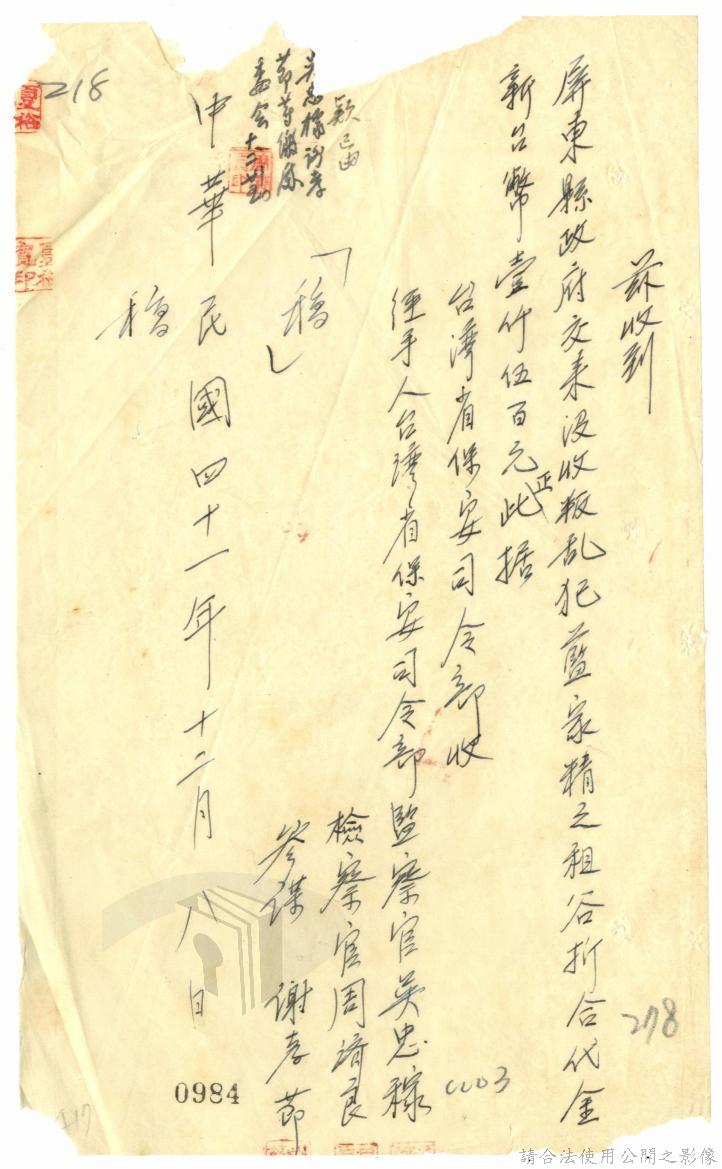 茲收到
屏東縣政府交來沒收叛乱犯藍家精之租谷折合代金
新台幣壹仟伍百元正此據
台灣省保安司令部收
經手人台灣省保安司令部監察官吳忠稼
檢察官周濟良
參謀 謝孝節
「稿」
中華民國四十一年十二月八日
稿
款已由
218
278
0003
0984
請合法使用公開之影像